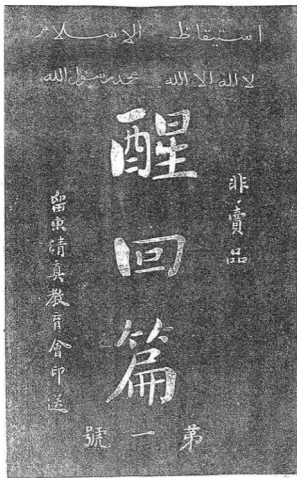 استيقاظ الاسلام
لا اله الا الله محمد رسول الله
醒回篇
非賣品
留東清真教育會印送
第一號